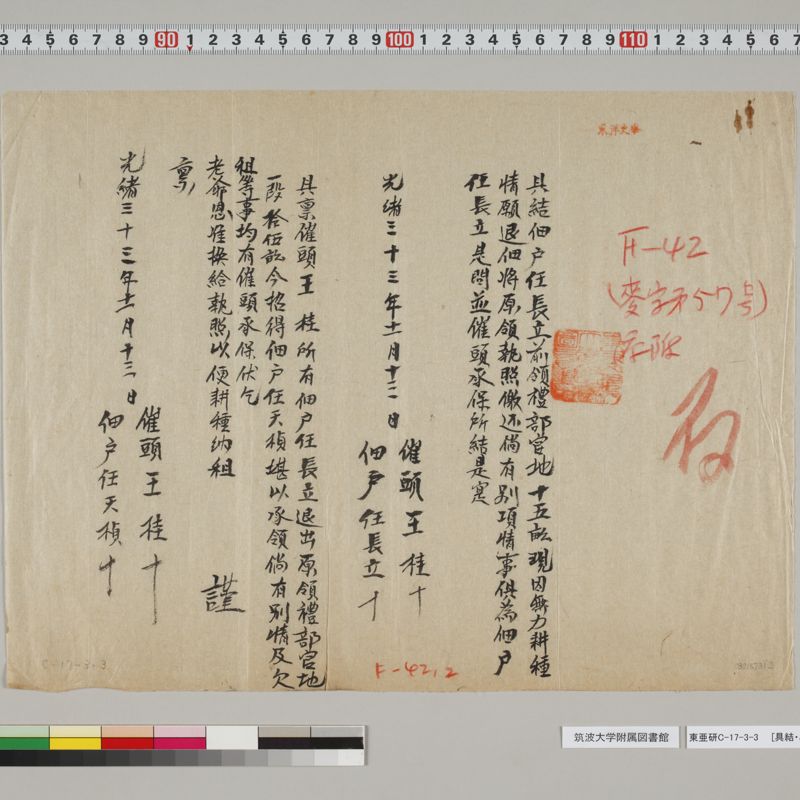 3 4 5 6 7 8 9 90 1 2 3 4 5 6 7 8 9 100 1 2 3 4 5 6 7 8 9 110 1 2 3 4 5 6 7
東洋文庫
F-42
(麥字第57号)
具結佃戶任長立前領禮部官地十五畝現因無力耕種
情願退佃將原領執照繳还倘有別項情事俱為佃戶
任長立是問並催頭承保所結是寔
光緒三十三年十一月十三日
催頭王桂十
佃戶任長立十
具稟催頭王桂所有佃戶任長立退出原領禮部官地
一段拾伍畝今招得佃戶任天楨堪以承領倘有別情及欠
租等事均有催頭承保伏乞
老爺恩准換給執照以便耕種纳租
謹
稟
光緒三十三年十一月十三日
催頭王桂十
佃戶任天楨十
F-42.2
C-17-3-3
筑波大学附属図書館
東亜研C-17-3-3 [具結・